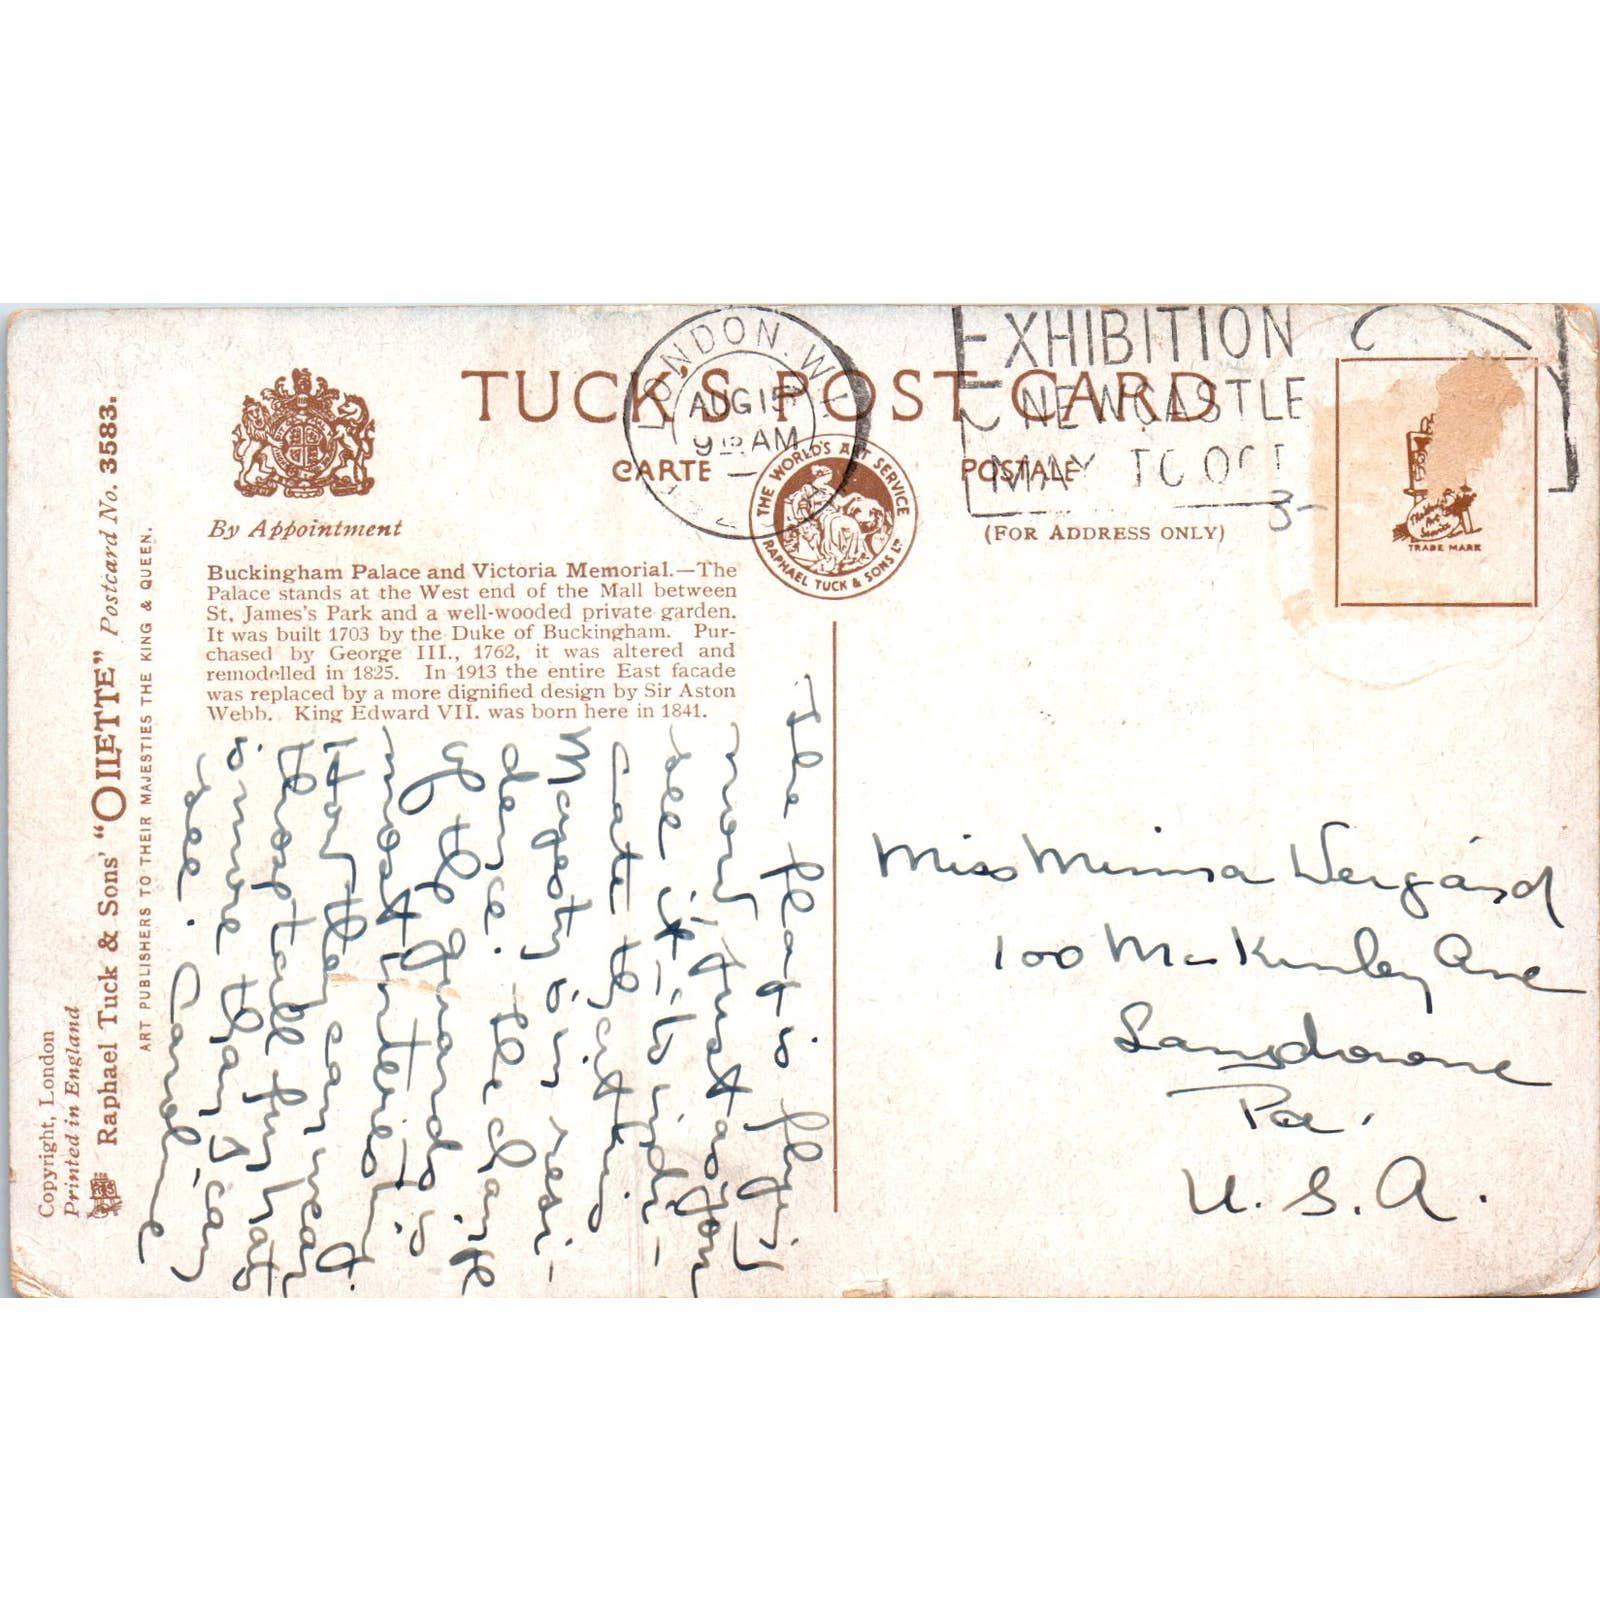 Copyright, London
Printed in England
Raphael Tuck & Sons' "OILETTE" Postcard No. 3583.
ART PUBLISHERS TO THEIR MAJESTIES THE KING & QUEEN.
By Appointment
TUCK'S POST CARD
CARTE POSTALE
(FOR ADDRESS ONLY)
THE WORLD'S ART SERVICE
RAPHAEL TUCK & SONS LTD
LONDON. W.1
AUG 15
9 15 AM
EXHIBITION
NEWCASTLE
MAY TO OCT
3-
The World's
Art
Service
TRADE MARK
Buckingham Palace and Victoria Memorial.—The
Palace stands at the West end of the Mall between
St. James's Park and a well-wooded private garden.
It was built 1703 by the Duke of Buckingham. Pur-
chased by George III., 1762, it was altered and
remodelled in 1825. In 1913 the entire East facade
was replaced by a more dignified design by Sir Aston
Webb. King Edward VII. was born here in 1841.
The flag is flying
now, just as you
see it - to indi-
cate that
Majesty is in resi-
dence. The change
of the guards is
most interesting.
How they can wear
those tall fur hats
is more than I can
see. Caroline
Miss Minna
100 McKinley Ave
Lansdowne
Pa.
U.S.A.